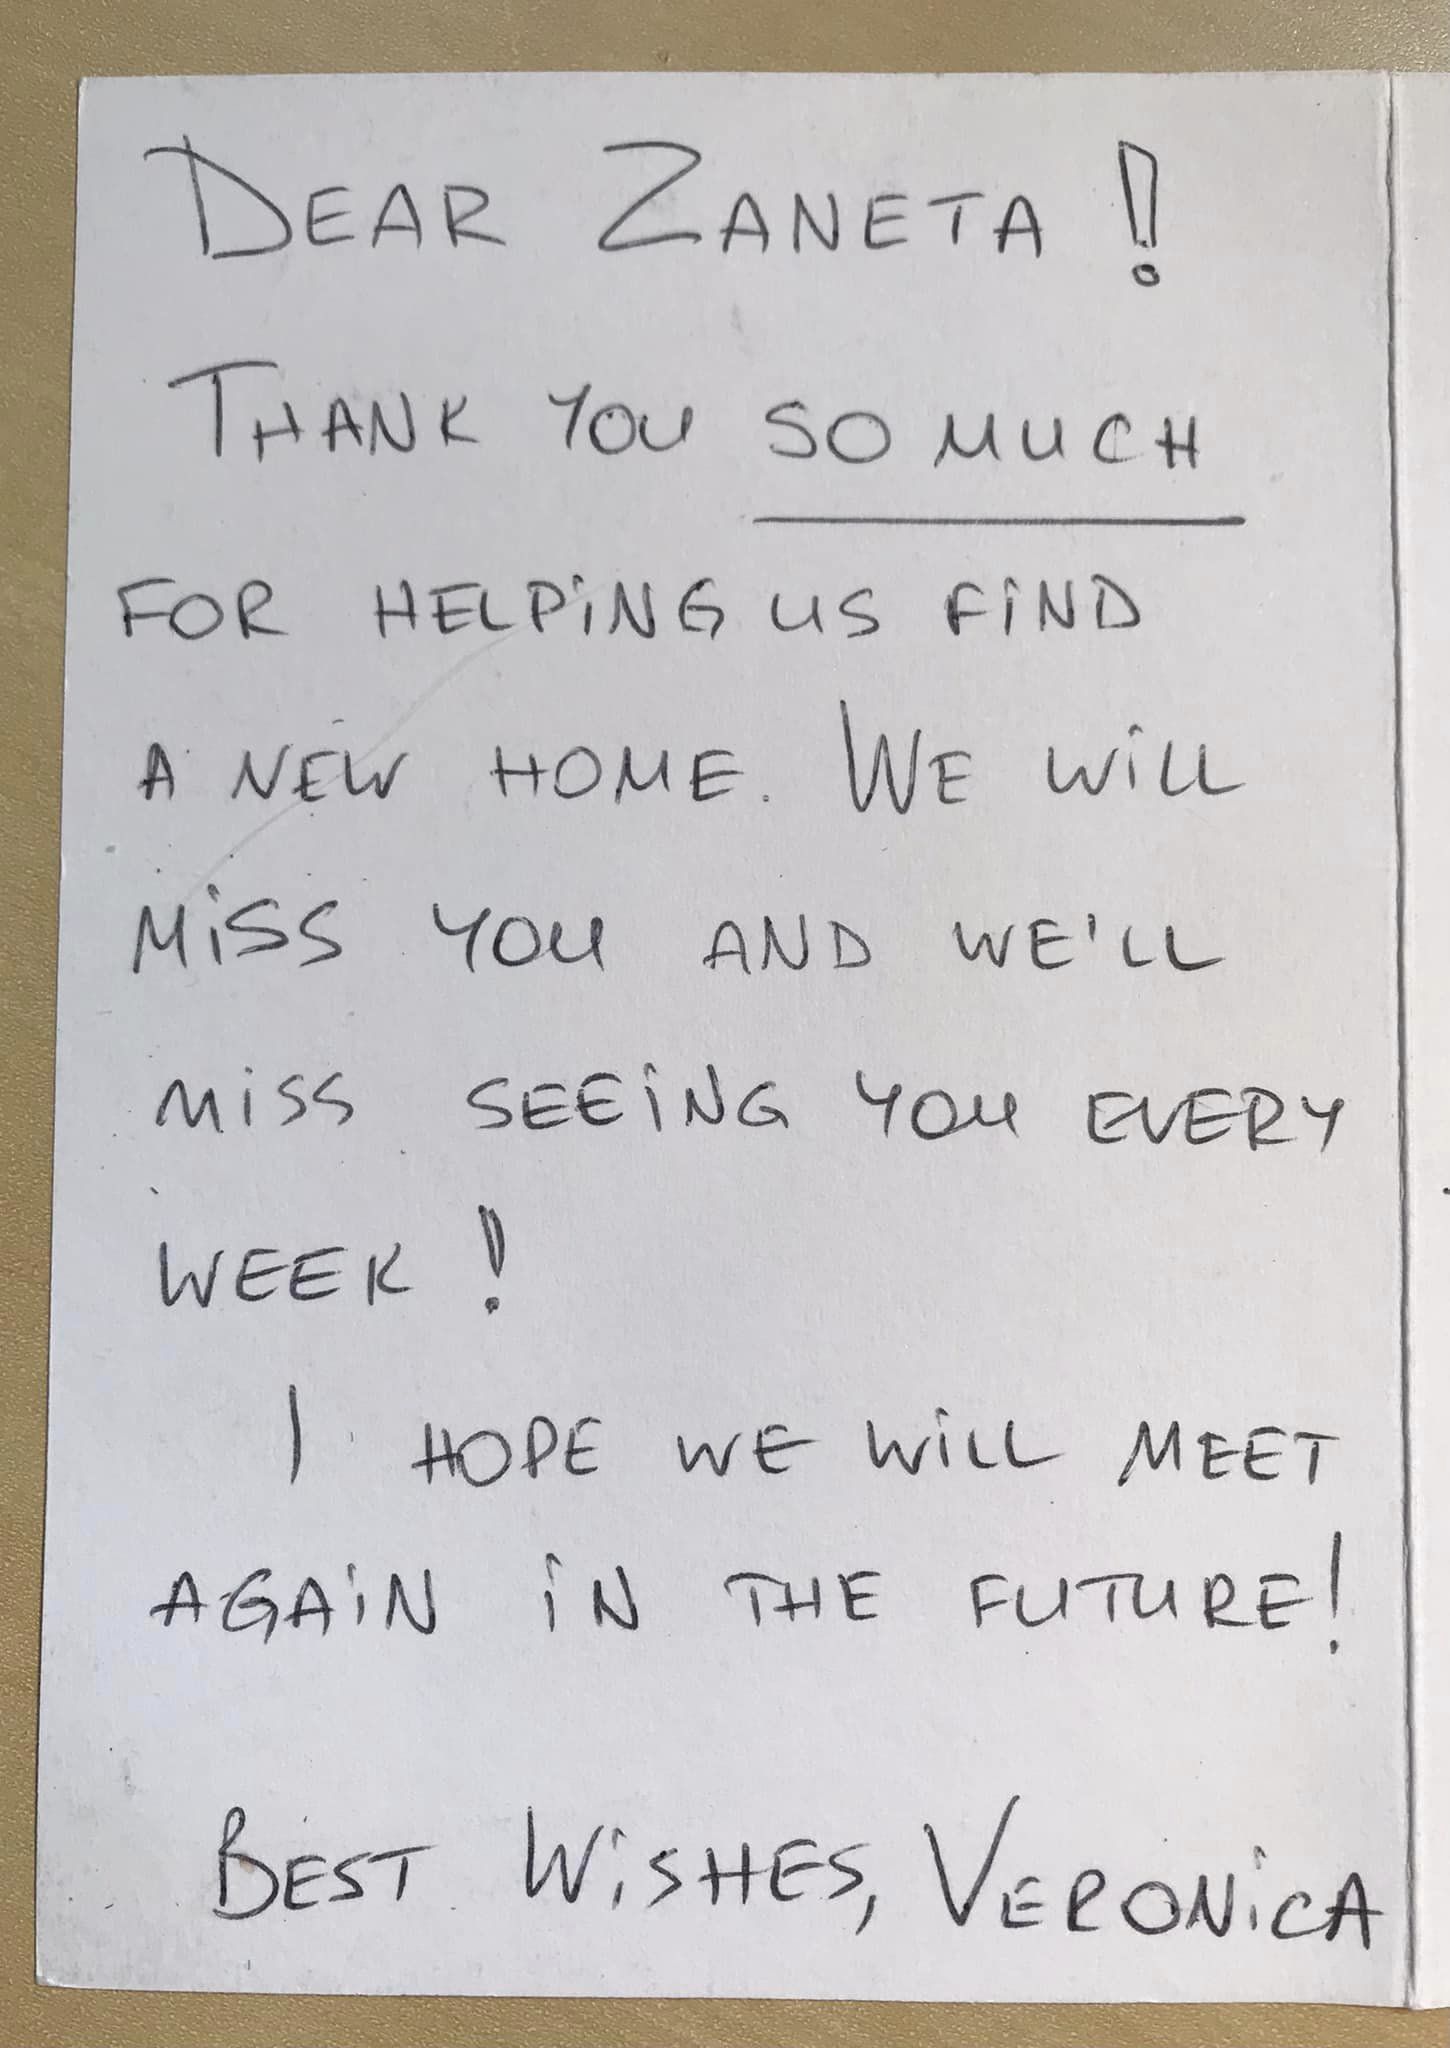 DEAR ZANETA!
THANK YOU SO MUCH
FOR HELPiNG US FiND
A NEW HOME. WE WiLL
MiSS YOU AND WE'LL
MiSS SEEiNG YOU EVERY
WEEK!
I HOPE WE WiLL MEET
AGAiN iN THE FUTURE!
BEST WiSHES, VERONiCA